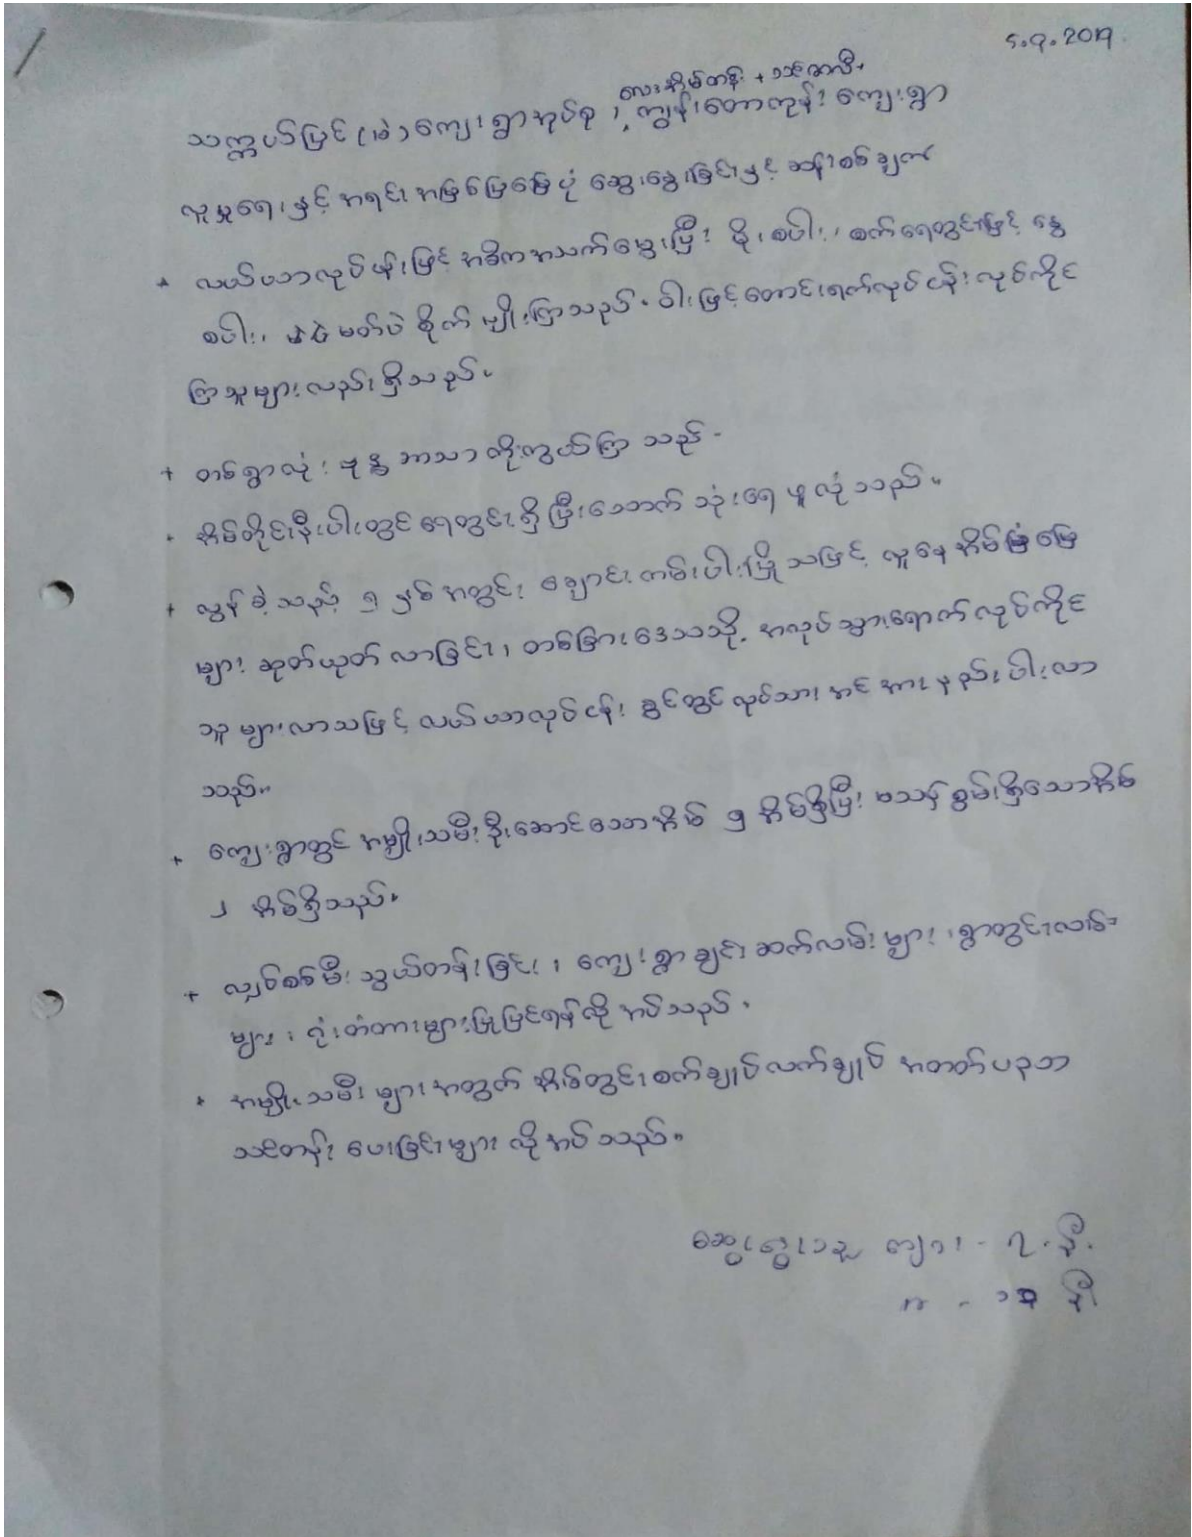 ၄.၇.2019
လေးအိမ်တန်း +
သက္ကယ်ပြင် (ခ) ကျေးရွာအုပ်စု ၊ ကျွန်းတောကုန်း ကျေးရွာ
လူမှုရေးနှင့် အရင်းအမြစ်မြေပုံ ဆွေးနွေးခြင်းနှင့် ဆန်းစစ်ချက်
+ လယ်ယာလုပ်ငန်းဖြင့် အဓိကအသက်မွေးပြီး မိုးစပါး၊ စက်ရေတွင်းဖြင့် နွေ
စပါး၊ မတ်ပဲ စိုက်မျိုးကြသည်။ ဝါးဖြင့်တောင်းရက်လုပ်ငန်း လုပ်ကိုင်
ကြသူများလည်းရှိသည်။
+ တစ်ရွာလုံး ဗုဒ္ဓဘာသာ ကိုးကွယ်ကြသည်။
+ အိမ်တိုင်းနီးပါးတွင် ရေတွင်းရှိပြီး သောက်သုံးရေ ဖူလုံသည်။
+ လွန်ခဲ့သည့် ၅ နှစ်အတွင်း ချောင်းကမ်းပါးပြိုသဖြင့် လူနေအိမ်ခြံမြေ
များ ဆုတ်ယုတ်လာခြင်း၊ တစ်ခြားဒေသသို့ အလုပ်သွားရောက်လုပ်ကိုင်
သူများလာသဖြင့် လယ်ယာလုပ်ငန်းခွင်တွင် လုပ်သားအင်အား နည်းပါးလာ
သည်။
+ ကျေးရွာတွင် အမျိုးသမီးဦးဆောင်သောအိမ် ၅ အိမ်ရှိပြီး မသန်စွမ်းရှိသောအိမ်
၂ အိမ်ရှိသည်။
+ လျှပ်စစ်မီးသွယ်တန်းခြင်း၊ ကျေးရွာချင်းဆက်လမ်းများ၊ ရွာတွင်းလမ်း
များ၊ ဂုံးတံတားများပြုပြင်ရန်လိုအပ်သည်။
+ အမျိုးသမီးများအတွက် အိမ်တွင်းစက်ချုပ်လက်ချုပ် အတတ်ပညာ
သင်တန်းပေးခြင်းများ လိုအပ်သည်။
ဆွေးနွေးသူ ကျား - ၇ ဦး
မ - ဦး